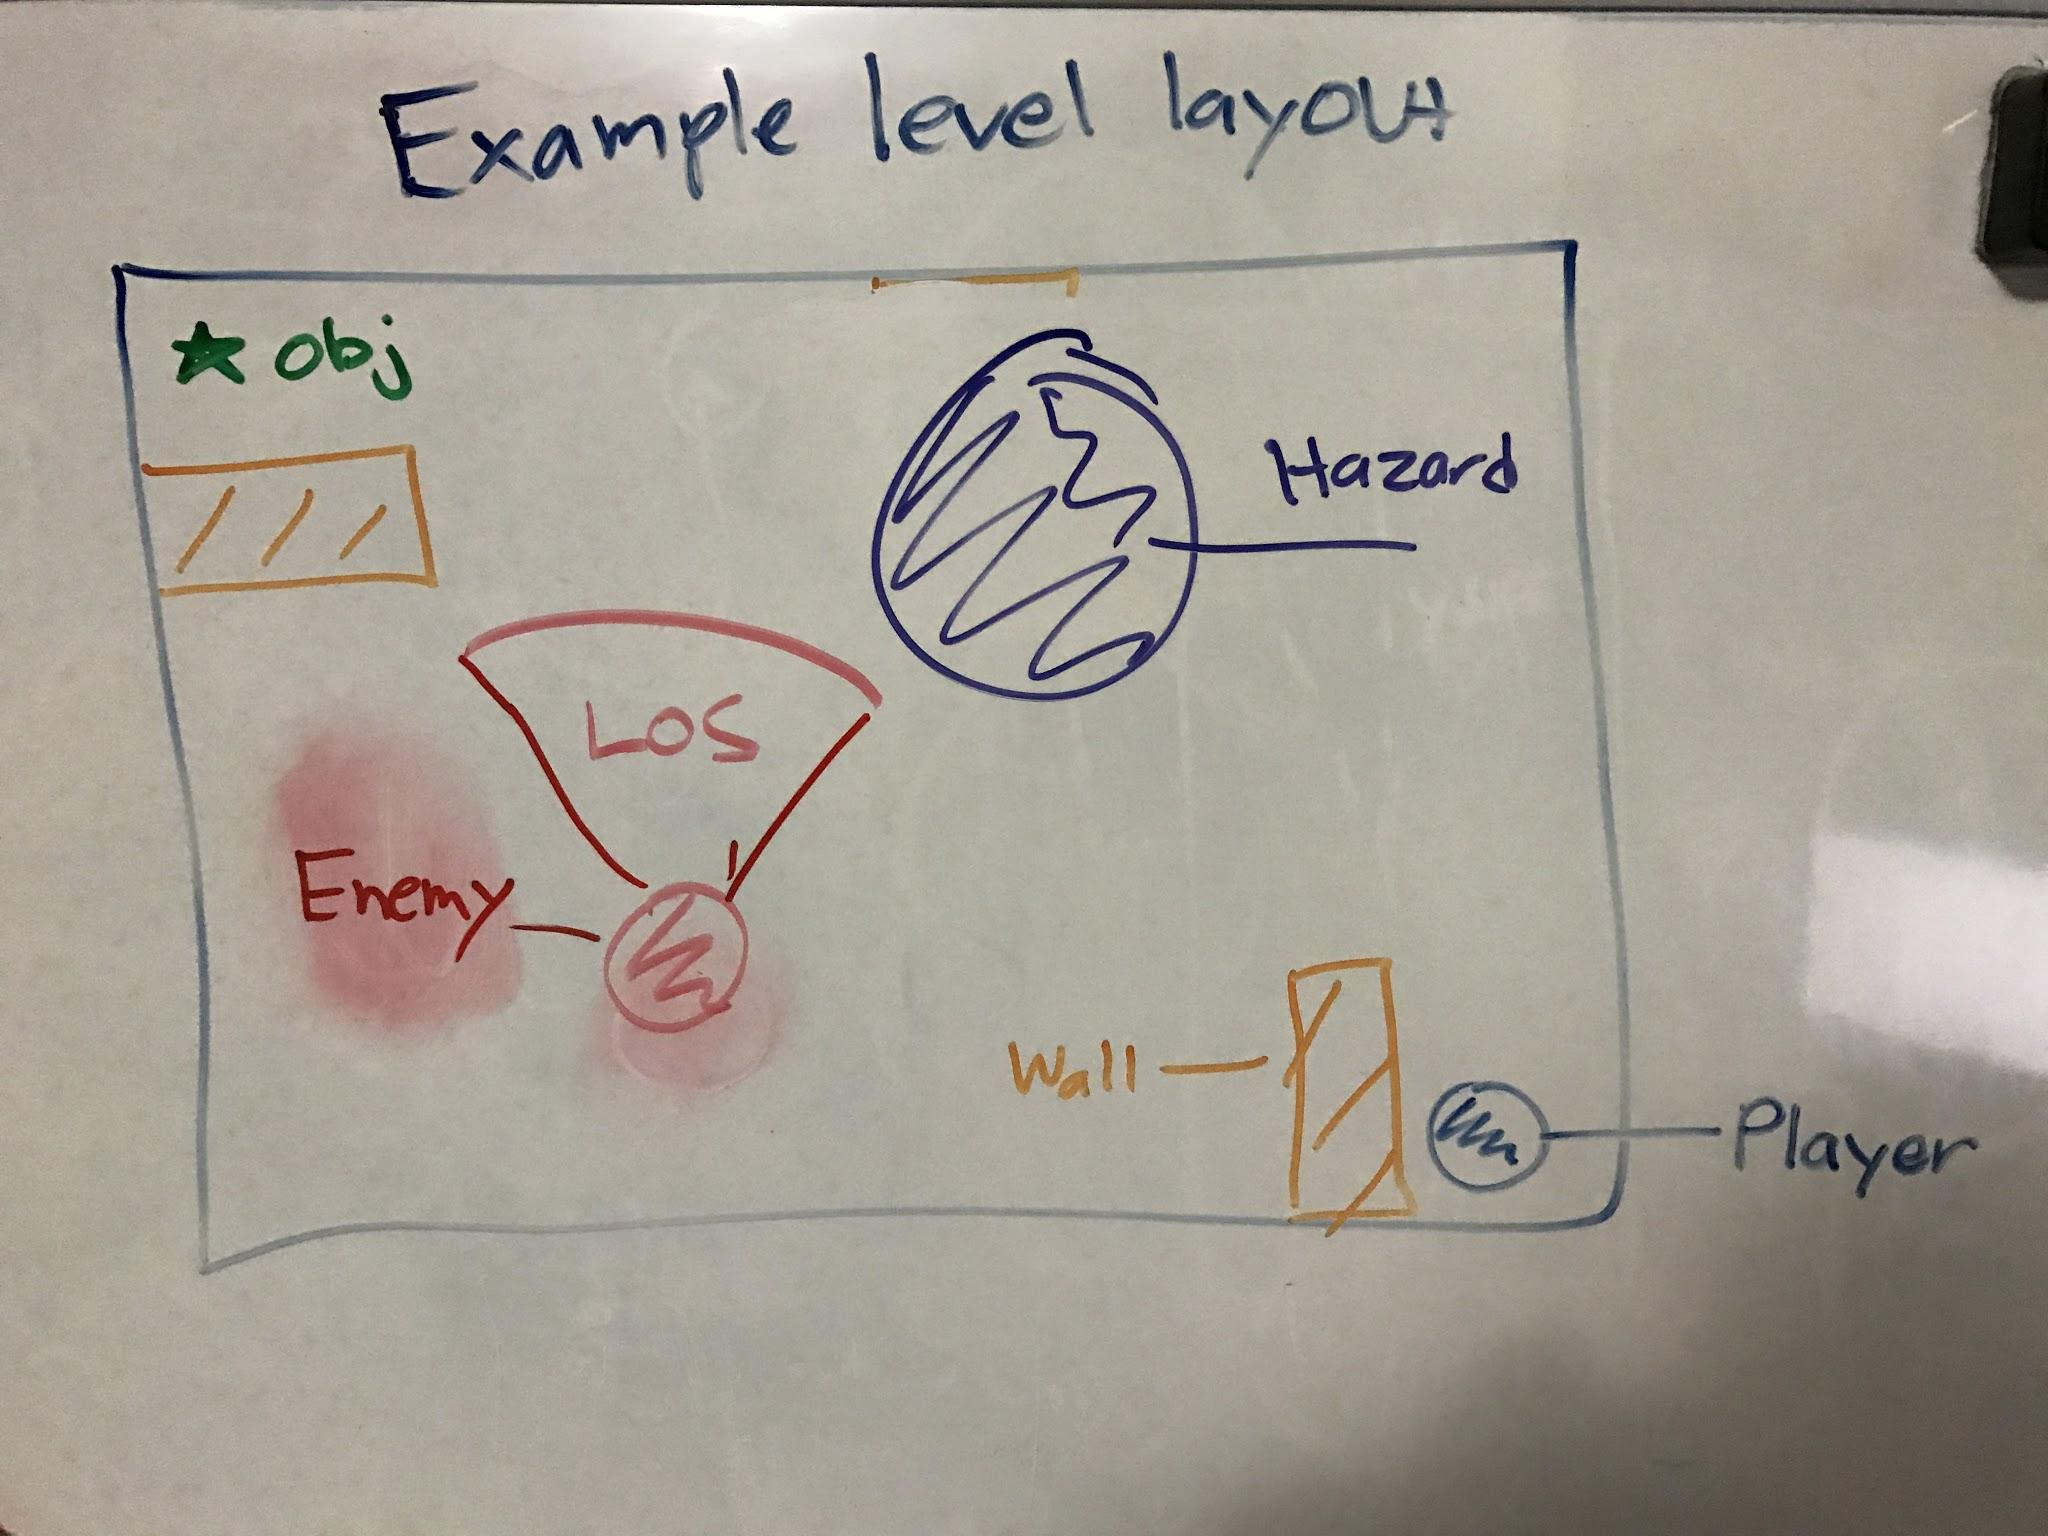 Example level layout
obj
Hazard
LOS
Enemy
Wall
Player